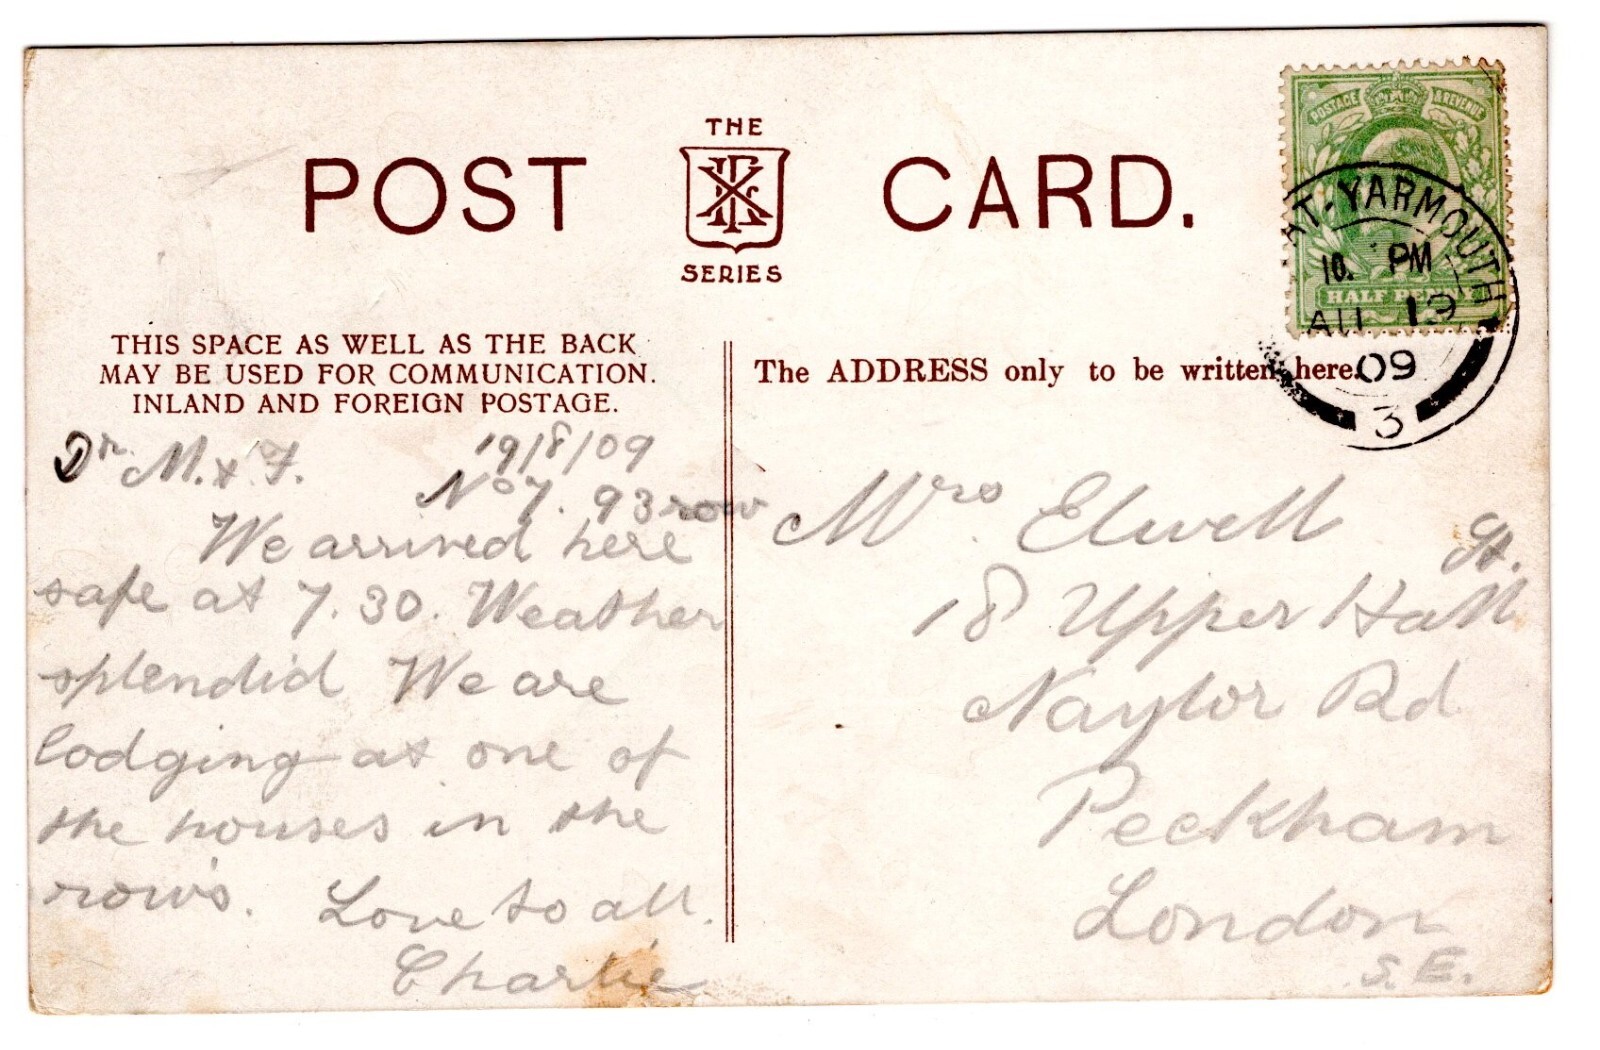 POST CARD.
THE
SERIES
THIS SPACE AS WELL AS THE BACK
MAY BE USED FOR COMMUNICATION.
INLAND AND FOREIGN POSTAGE.
The ADDRESS only to be written here.
POSTAGE & REVENUE
HALF PENNY
AT-YARMOUTH
10. PM
AU 19
09
3
Dr. M. & F. 19/8/09
No 7. 93 row
We arrived here
safe at 7.30. Weather
splendid We are
lodging at one of
the houses in the
rows. Love to all.
Charlie
Mrs Elwell
18 Upper Hall St.
Naylor Rd
Peckham
London
S.E.